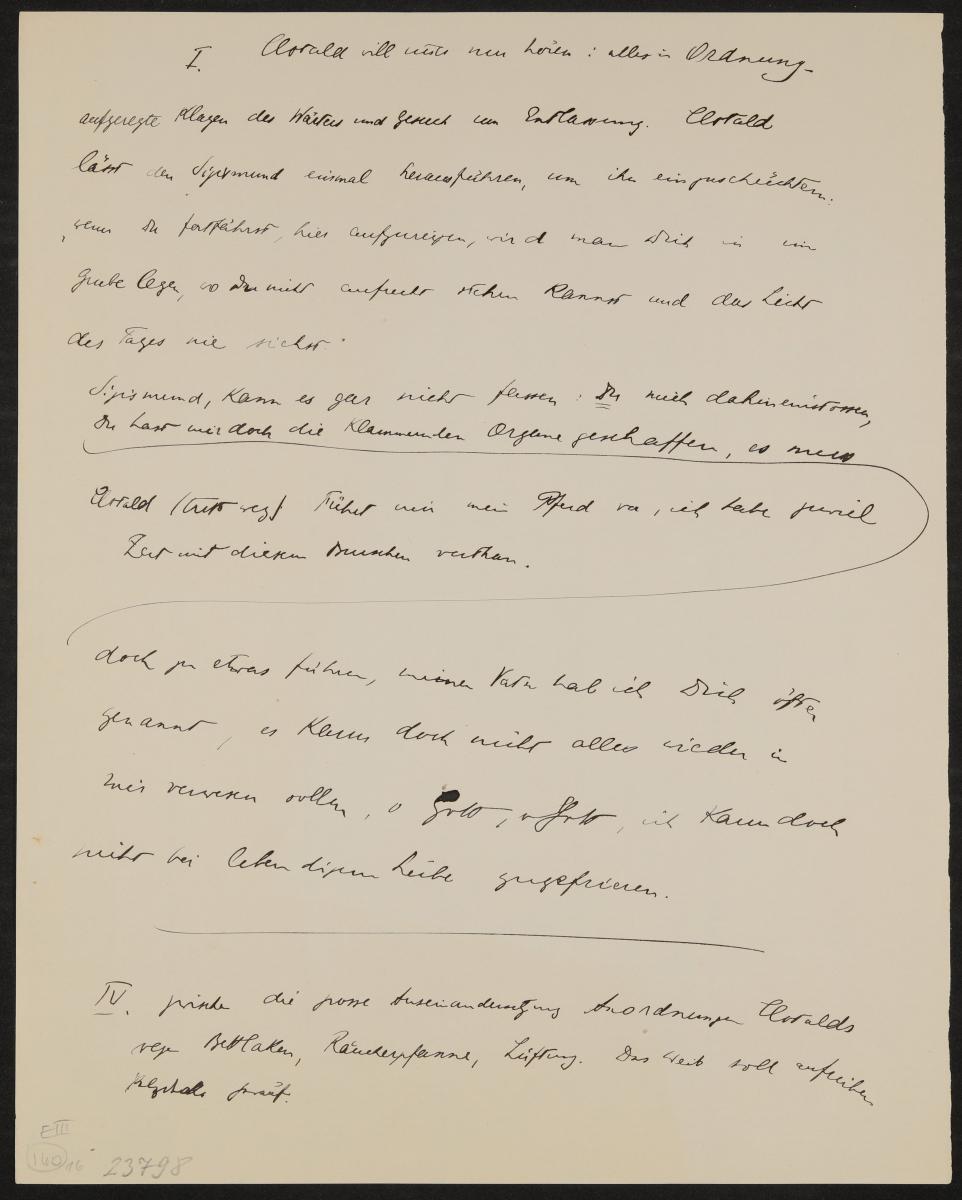 I. Clotald will nur hören: alles in Ordnung –
aufgeregte Klagen des Wärters und Gesuch um Entlassung. Clotald
lässt den Sigismund einmal herausführen, um ihn einzuschüchtern:
„wenn Du fortfährst, hier aufzureizen, wird man Dich in ein
Grube legen, wo Du nicht aufrecht stehen kannst und das Licht
des Tages nie siehst“
Sigismund, kann es gar nicht fassen: Du mich dahineinstossen,
Du hast mir doch die klammernden Organe geschaffen, es muss
Clotald (tritt weg) Führt mir mein Pferd vor, ich habe zuviel
Zeit mit diesem Burschen verthan.
doch zu etwas führen, meinen Vater hab ich Dich öfter
genannt, es kann doch nicht alles wieder in
mir verwesen sollen, o Gott, o Gott, ich kann doch
nicht bei lebendigem Leibe zugefrieren.
IV. zwischen die grosse Auseinandersetzung Anordnungen Clotalds
wegen Bettlaken, Räucherpfanne, Lüftung. Das Weib soll aufreiben
E III
140 16 23798